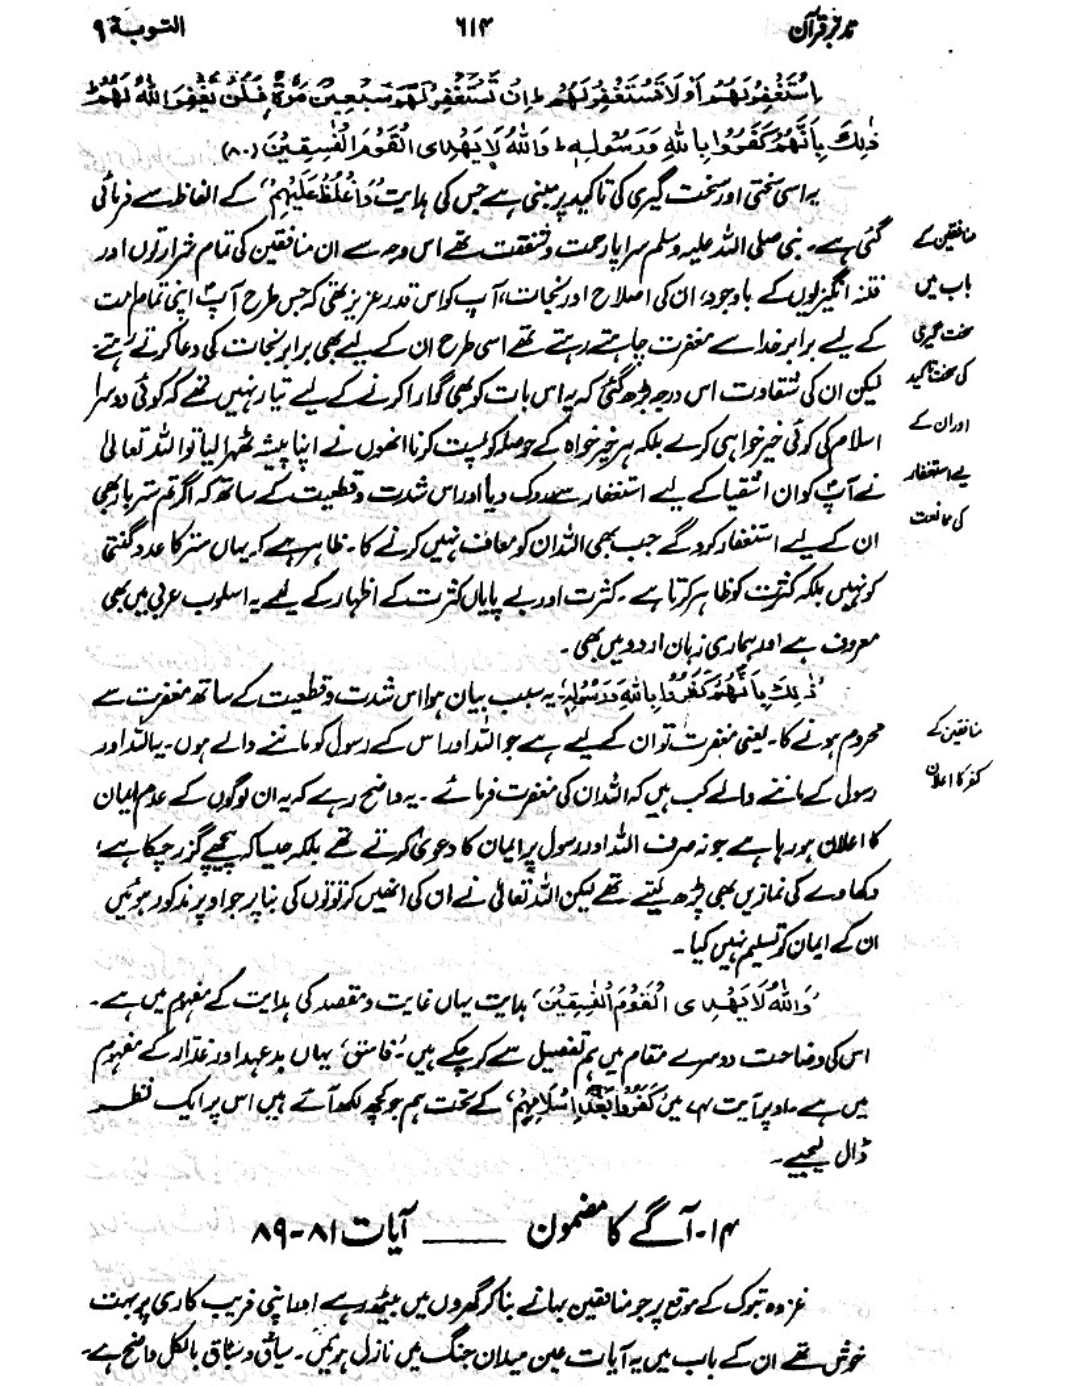 تدبر قرآن
۶۱۴
التوبة ۹
اِسْتَغْفِرْ لَهُمْ اَوْ لَا تَسْتَغْفِرْ لَهُمْ ط اِنْ تَسْتَغْفِرْ لَهُمْ سَبْعِيْنَ مَرَّةً فَلَنْ يَّغْفِرَ اللّٰهُ لَهُمْ ط
ذٰلِكَ بِاَنَّهُمْ كَفَرُوْا بِاللّٰهِ وَرَسُوْلِهٖ ط وَاللّٰهُ لَا يَهْدِى الْقَوْمَ الْفٰسِقِيْنَ (۸۰)
یہ اسی سختی اور سخت گیری کی تاکید پر مبنی ہے جس کی ہدایت ’وَاغْلُظْ عَلَيْهِمْ‘ کے الفاظ سے فرمائی
گئی ہے۔ نبی صلی اللہ علیہ وسلم سراپا رحمت و شفقت تھے اس وجہ سے ان منافقین کی تمام شرارتوں اور
فتنہ انگیزیوں کے باوجود، ان کی اصلاح اور نجات، آپ کو اس قدر عزیز تھی کہ جس طرح آپ اپنی تمام امت
کے لیے برابر خدا سے مغفرت چاہتے رہتے تھے اسی طرح ان کے لیے بھی برابر نجات کی دعا کرتے رہتے۔
لیکن ان کی شقاوت اس درجہ بڑھ گئی کہ یہ اس بات کو بھی گوارا کرنے کے لیے تیار نہیں تھے کہ کوئی دوسرا
اسلام کی کوئی خیر خواہی کرے بلکہ ہر خیر خواہ کے حوصلہ کو پست کرنا انھوں نے اپنا پیشہ ٹھہرا لیا تو اللہ تعالیٰ
نے آپؐ کو ان اشقیا کے لیے استغفار سے روک دیا اور اس شدت و قطعیت کے ساتھ کہ اگر تم ستر بار بھی
ان کے لیے استغفار کرو گے جب بھی اللہ ان کو معاف نہیں کرنے کا۔ ظاہر ہے کہ یہاں ستر کا عدد گنتی
کو نہیں بلکہ کثرت کو ظاہر کرتا ہے۔ کثرت اور بے پایاں کثرت کے اظہار کے لیے یہ اسلوب عربی میں بھی
معروف ہے اور ہماری زبان اردو میں بھی۔
منافقین کے
باب میں
سخت گیری
کی سخت تاکید
اور ان کے
لیے استغفار
کی ممانعت
’ذٰلِكَ بِاَنَّهُمْ كَفَرُوْا بِاللّٰهِ وَرَسُوْلِهٖ‘ یہ سبب بیان ہوا اس شدت و قطعیت کے ساتھ مغفرت سے
محروم ہونے کا۔ یعنی مغفرت تو ان کے لیے ہے جو اللہ اور اس کے رسول کو ماننے والے ہوں۔ یہ اللہ اور
رسول کے ماننے والے کب ہیں کہ اللہ ان کی مغفرت فرمائے۔ یہ واضح رہے کہ یہ ان لوگوں کے عدم ایمان
کا اعلان ہو رہا ہے جو نہ صرف اللہ اور رسول پر ایمان کا دعویٰ کرتے تھے بلکہ جیسا کہ پیچھے گزر چکا ہے،
دکھاوے کی نمازیں بھی پڑھ لیتے تھے لیکن اللہ تعالیٰ نے ان کی انھیں کرتوتوں کی بنا پر جو اوپر مذکور ہوئیں
ان کے ایمان کو تسلیم نہیں کیا۔
منافقین کے
کفر کا اعلان
’وَاللّٰهُ لَا يَهْدِى الْقَوْمَ الْفٰسِقِيْنَ‘ ہدایت یہاں غایت و مقصد کی ہدایت کے مفہوم میں ہے۔
اس کی وضاحت دوسرے مقام میں ہم تفصیل سے کر چکے ہیں۔ ’فاسق‘ یہاں بد عہد اور غدار کے مفہوم
میں ہے۔ اوپر آیت ۷۴ میں ’كَفَرُوْا بَعْدَ اِسْلَامِهِمْ‘ کے تحت ہم جو کچھ لکھ آئے ہیں اس پر ایک نظر
ڈال لیجیے۔
۱۴۔ آگے کا مضمون ـــــ آیات ۸۱-۸۹
غزوہ تبوک کے موقع پر جو منافقین بہانے بنا کر گھروں میں بیٹھ رہے اور اپنی فریب کاری پر بہت
خوش تھے ان کے باب میں یہ آیات عین میدان جنگ میں نازل ہوئیں۔ سیاق و سباق بالکل واضح ہے۔